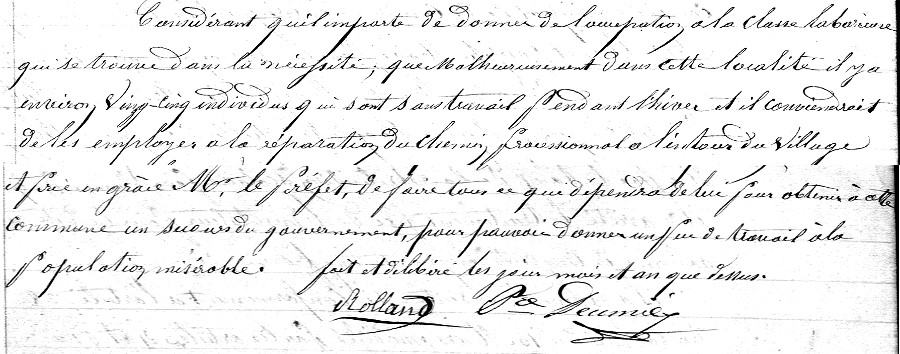 Considérant qu'il importe de donner de l'occupation a la classe laborieuse
qui se trouve dans la nécessité; que Malheureusement dans cette localité il y a
environ Vingt-Cinq individus qui sont sans travail pendant l'hiver et il conviendrait
de les employer a la réparation du chemin processionnal a l'entour du Village
et prie en grâce Mr. le Préfet, de faire tous ce que dépendra de lui pour obtenir à cette
commune un secours du gouvernement, pour pouvoir donner un peu de travail à la
population misérable. fait et délibéré les jour mois et an que dessus.
Rolland Pre